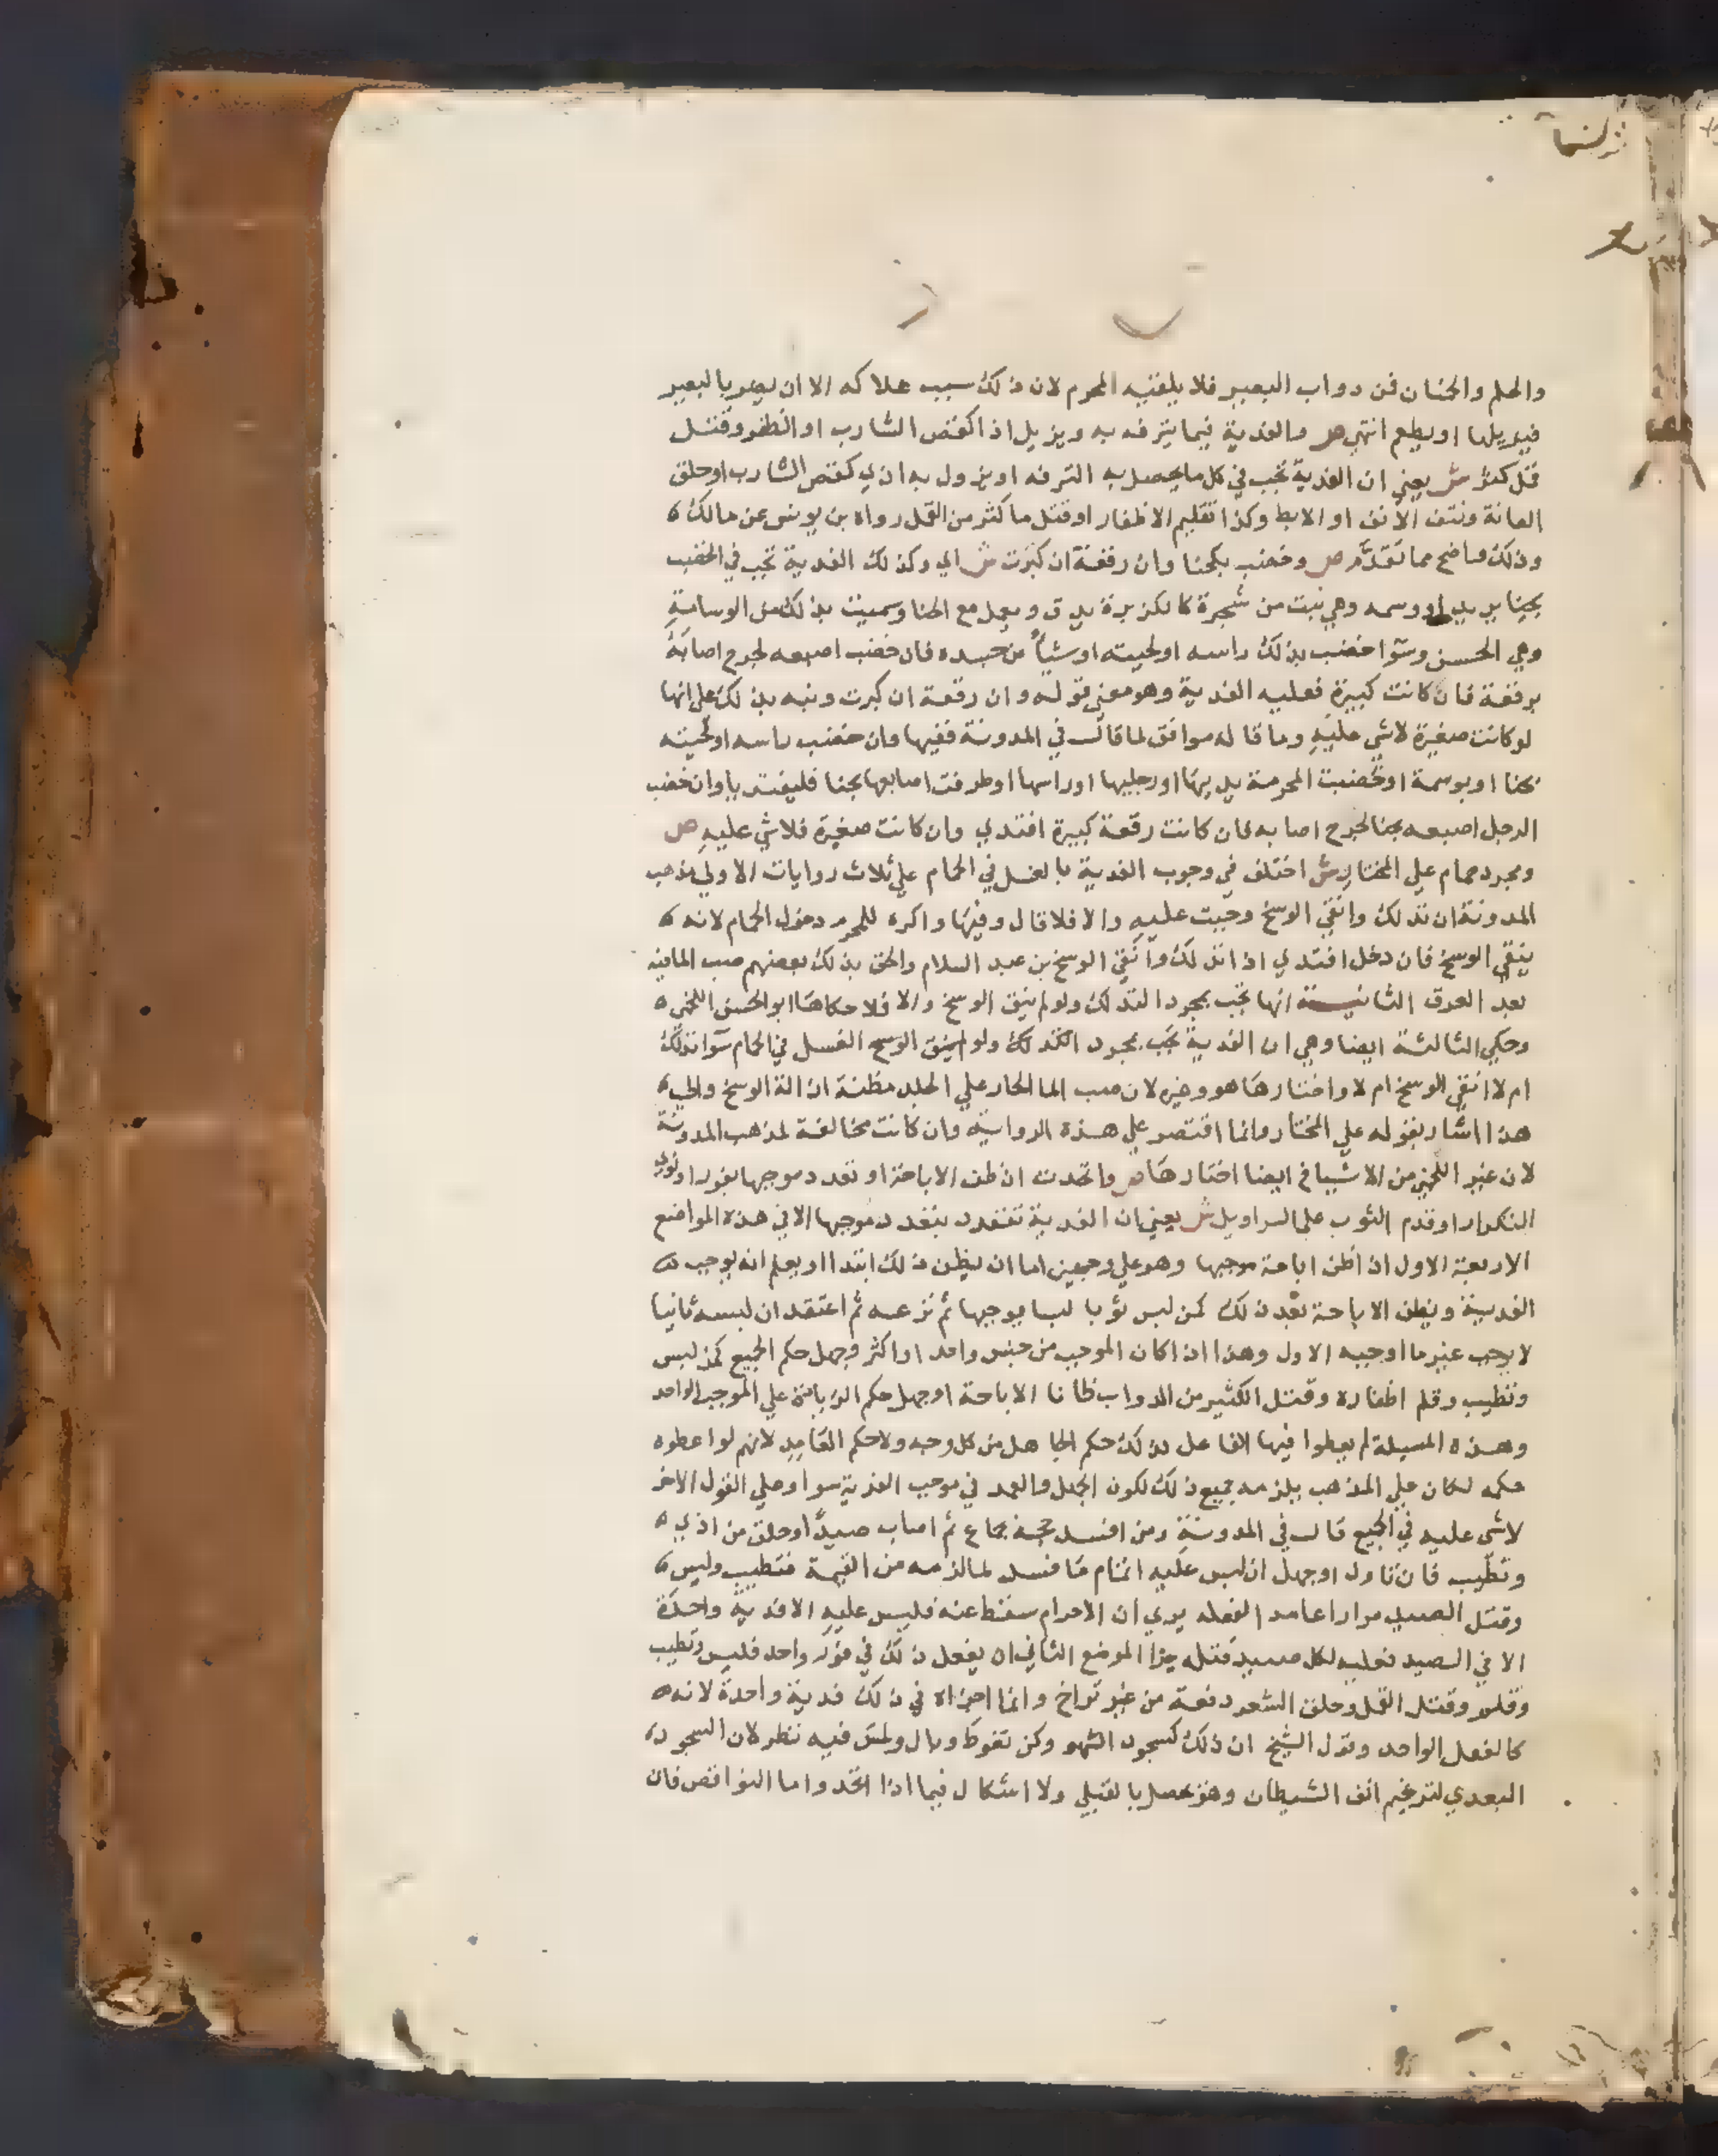 والحلم والحمنان فن دواب البعير فلا يلقيه المحرم لان ذلك سبب هلاكه الا ان يضر بالبعير
فيزيلها او يطعم انتهي ص والفدية فيما يترفه به ويزيل اذا كقص الشارب او الظفر وقتل
قمل كثر ش يعني ان الفدية تجب في كل ما يحصل به الترفه او يزول به اذي كقص الشارب او حلق
العانة ونتف الانف او الابط وكذا تقليم الاظفار او قتل ما كثر من القمل رواه بن يونس عن مالك
وذلك واضح مما تقدم ص وخضب بكحنا وان رقعة ان كبرت ش اي وكذلك الفدية تجب في الخضب
بحنا او وسمه وهي نبت من شجرة كالكزبرة يدق ويعمل مع الحنا وسميت بذلك من الوسامة
وهي الحسن وسوا خضب بذلك راسه او لحيته او شيا من جسده فان خضب اصبعه لجرح اصابه
برقعة فان كانت كبيرة فعليه الفدية وهو معني قوله وان رقعة ان كبرت ونبه بذلك علي انها
لو كانت صغيرة لا شي عليه وما قاله موافق لما قال في المدونة ففيها وان خضب راسه او لحيته
بحنا او بوسمة او خضبت المحرمة يديها او رجليها او راسها او طرفت اصابعها بحنا فليفتديا وان خضب
الرجل اصبعه بحنا لجرح اصابه فان كانت رقعة كبيرة افتدي وان كانت صغيرة فلا شي عليه ص
ومجرد حمام علي المختار ش اختلف في وجوب الفدية بالغسل في الحمام علي ثلاث روايات الاولي مذهب
المدونة ان تدلك وانقي الوسخ وجبت عليه والا فلا قال وفيها واكره للمحرم دخول الحمام لانه
ينقي الوسخ فان دخل افتدي اذا تدلك وانقي الوسخ بن عبد السلام والحق بذلك بعضهم صب الما فيه
بعد العرق الثانية انها تجب بمجرد التدلك ولو لم ينق الوسخ والا فلا حكاها ابو الحسن اللخمي
وحكي الثالثة ايضا وهي ان الفدية تجب بمجرد الغسل في الحمام سوا تدلك
ام لا انقي الوسخ ام لا واختارها هو وغيره لان صب الما الحار علي الجلد مظنة ازالة الوسخ والي
هذا اشار بقوله علي المختار وانما اقتصر علي هذه الرواية وان كانت مخالفة لمذهب المدونة
لان غير اللخمي من الاشياخ ايضا اختارها ص واتحدت ان ظن الاباحة او تعدد موجبها بفور او نوي
التكرار او قدم الثوب علي السراويل ش يعني ان الفدية تتعدد بتعدد موجبها الا في هذه المواضع
الاربعة الاول اذا ظن اباحة موجبها وهو علي وجهين اما ان يظن ذلك ابتدا او يعلم انه يوجب
الفدية ويظن الاباحة بعد ذلك كمن لبس ثوبا لبسا يوجبها ثم نزعه ثم اعتقد ان لبسه ثانيا
لا يوجب غير ما اوجبه الاول وهذا اذا كان الموجب من جنس واحد او اكثر وجهل حكم الجميع كمن لبس
وتطيب وقلم اظفاره وقتل الكثير من الدواب ظانا الاباحة او جهل حكم الزيادة علي الموجب الواحد
وهذه المسيلة لم يعطوا فيها الفاعل بذلك حكم الجاهل من كل وجه ولا حكم العامد لانهم لو اعطوه
حكمه لكان علي المذهب يلزمه جميع ذلك لكون الجهل والعمد في موجب الفدية سوا وعلي القول الاخر
لا شي عليه في الجميع قال في المدونة ومن افسد حجه بجماع ثم اصاب صيدا او حلق من اذي
وتطيب فان تاول او جهل ان ليس عليه اتمام ما فسد لما لزمه من القيمة فتطيب ولبس
وقتل الصيد مرارا عامدا لفعله يري ان الاحرام سقط عنه فليس عليه الا فدية واحدة
الا في الصيد فعليه لكل صيد قتله جزا الموضع الثاني ان يفعل ذلك في فور واحد فلبس وتطيب
وقلم وقتل القمل وحلق الشعر دفعة من غير تراخ وانما اجزاه في ذلك فدية واحدة لانه
كالفعل الواحد وقول الشيخ ان ذلك كسجود السهو وكمن تغوط وبال ولمس فيه نظر لان السجود
البعدي لترغيم انف الشيطان وهو يحصل بالقبلي ولا اشكال فيما اذا اتحد واما النواقض فان